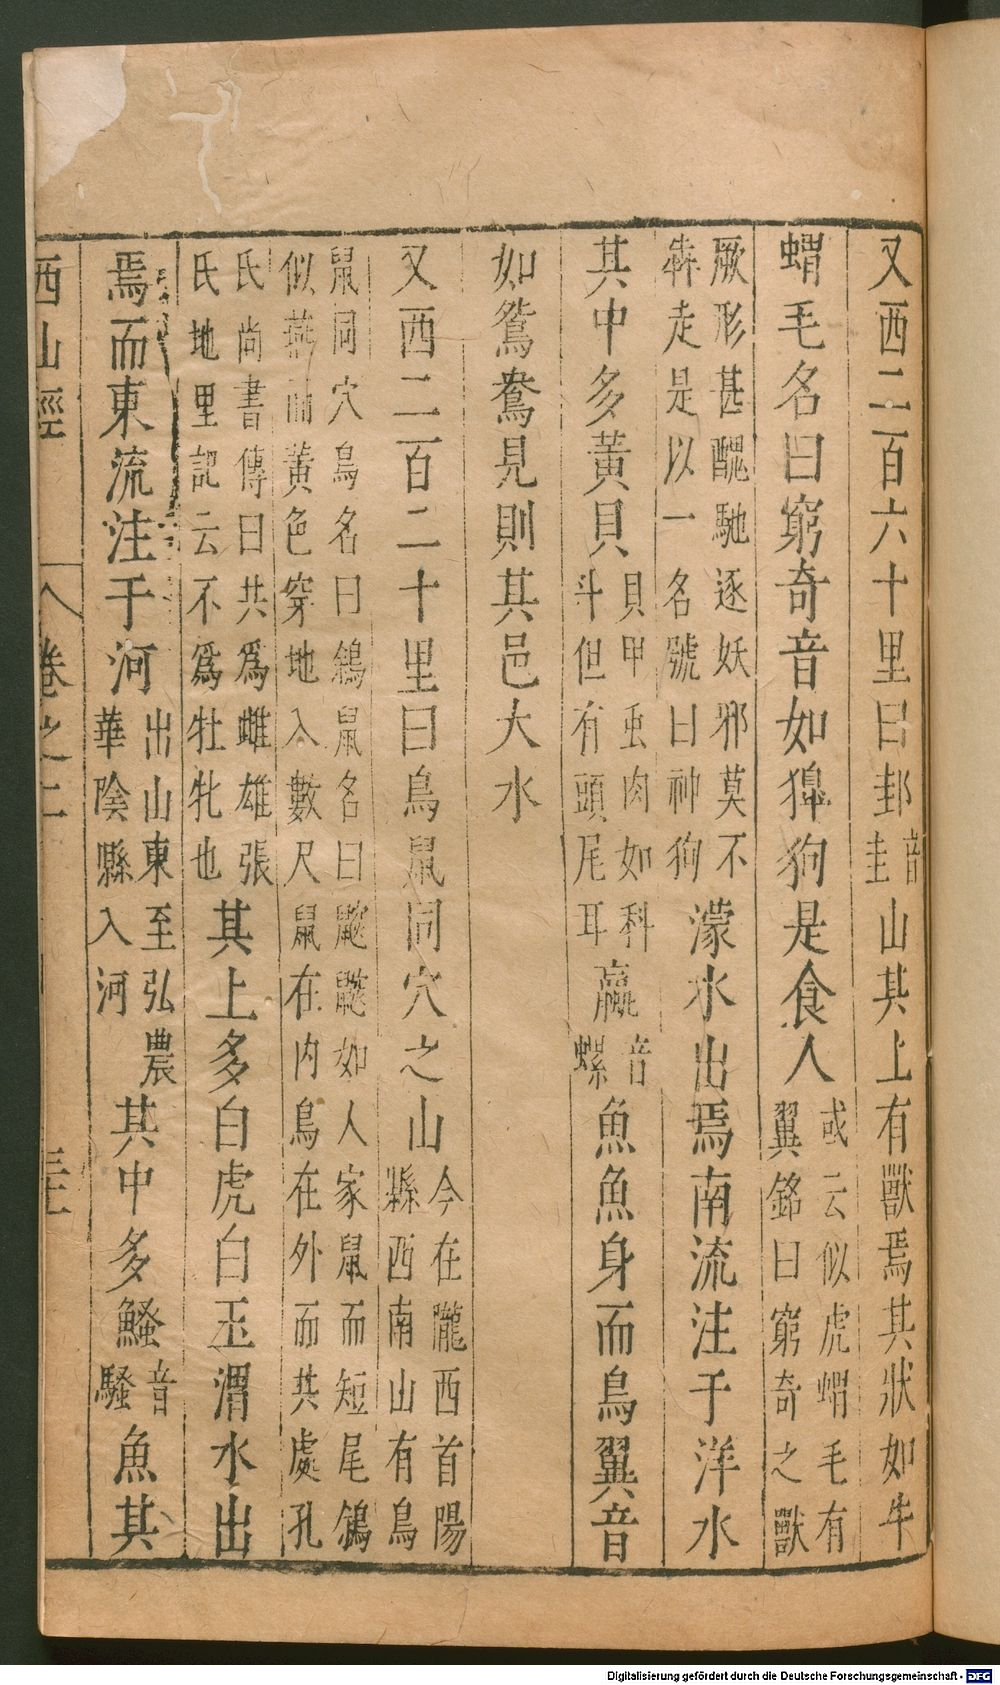 又西二百六十里曰邽音圭山其上有獸焉其狀如牛
蝟毛名曰窮奇音如獋狗是食人或云似虎蝟毛有翼銘曰窮奇之獸
厥形甚醜馳逐妖邪莫不犇走是以一名號曰神狗濛水出焉南流注于洋水
其中多黃貝貝甲虫肉如科斗但有頭尾耳蠃音螺魚魚身而鳥翼音
如鴛鴦見則其邑大水
又西二百二十里曰鳥鼠同穴之山今在隴西首陽縣西南山有鳥
鼠同穴鳥名曰鵌鼠名曰鼵鼵如人家鼠而短尾鵌似燕而黃色穿地入數尺鼠在內鳥在外而共處孔
氏尚書傳曰共為雌雄張氏地里記云不為牡牝也其上多白虎白玉渭水出
焉而東流注于河出山東至弘農華陰縣入河其中多鰠音騷魚其
西山經 卷之二
Digitalisierung gefördert durch die Deutsche Forschungsgemeinschaft - DFG